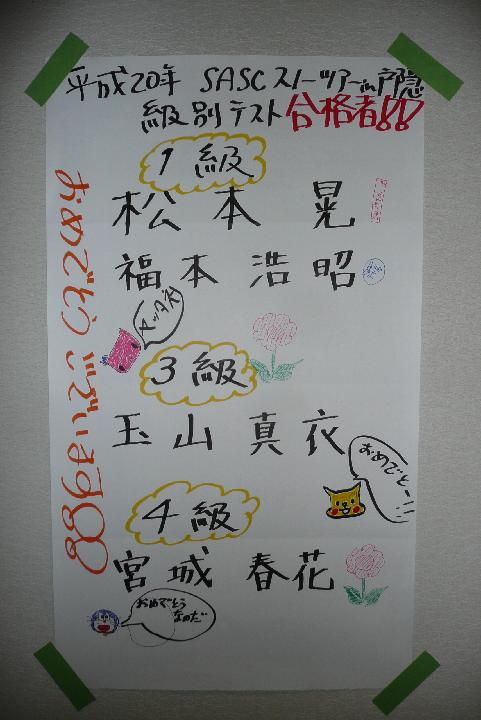 平成20年 SASCスノーツアーin戸隠
級別テスト合格者!!
1級
松本 晃
福本 浩昭
ヤッタネ
3級
玉山 真衣
おめでとー!!
4級
宮城 春花
おめでとう
なのだ
おめでとうございます